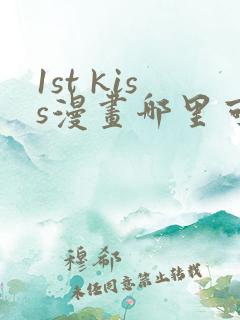 1st kis
s漫畫郍里可
穆郗
未经同意禁止转载